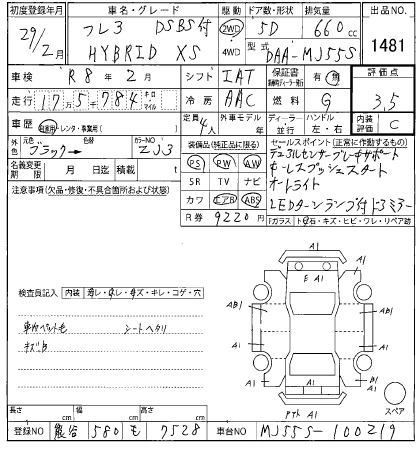 初度登録年月 車名・グレード 駆動 ドア数・形状 排気量 出品NO.
29/2月 フレア DSBS付 2WD 5D 660cc 1481
HYBRID XS 4WD 型式 DAA-MJ55S
車検 R8年2月 シフト IAT 保証書 有・無 評価点
走行 17万5千784 キロ マイル 冷房 AAC 燃料 G 3.5
車歴 自家用・レンタ・事業用( ) 定員 4人 外車モデル 年 ディーラー 並行 ハンドル 左・右 内装評価 C
外色 元色 ブラック 色替 カラーNO ZJ3 装備品(純正品に限る) セールスポイント(正常に作動するもの)
名義変更期限 月 日迄 積載 t PS PW AW デュアルセンサーブレーキサポート
注意事項(欠品・修復・不具合箇所および状態) SR TV ナビ キーレスプッシュスタート
カワ エアB ABS オートライト
R券 9220円 LEDターンランプ付ドアミラー
Fガラス トビ石・キズ・ヒビ・ワレ・リペア跡
検査員記入 内装 ヨゴレ・スレ・キズ・キレ・コゲ・穴
シートヘタリ
A1
E A1
AB1 AB1
A1 A1
A1
A1
スペア
長さ cm 幅 cm 高さ cm
登録NO 熊谷 580 も 7528 車台NO MJ55S-100219